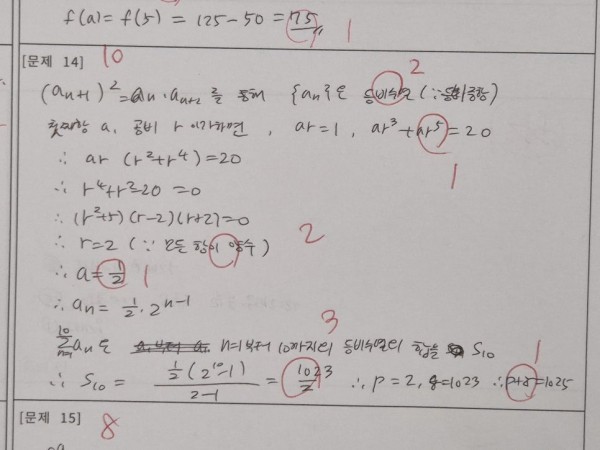 f(a) = f(5) = 125 - 50 = 75
1
[문제 14] 10
(an+1)² = an · an+2 를 통해 {an}은 등비수열 (∵ 등비중항)
2
첫째항 a, 공비 r 이라하면, ar = 1, ar³ + ar⁵ = 20
1
∴ ar (r² + r⁴) = 20
∴ r⁴ + r² - 20 = 0
∴ (r² + 5)(r - 2)(r + 2) = 0
∴ r = 2 (∵ 모든 항이 양수) 2
∴ a = 1/2 1
∴ an = 1/2 · 2ⁿ⁻¹
3
10 Σ n=1 an은 n=1부터 10까지의 등비수열의 합을 S10
1
∴ S10 = 1/2 (2¹⁰ - 1) / 2 - 1 = 1023/2 ∴ p = 2, q = 1023 ∴ p+q = 1025
[문제 15] 8